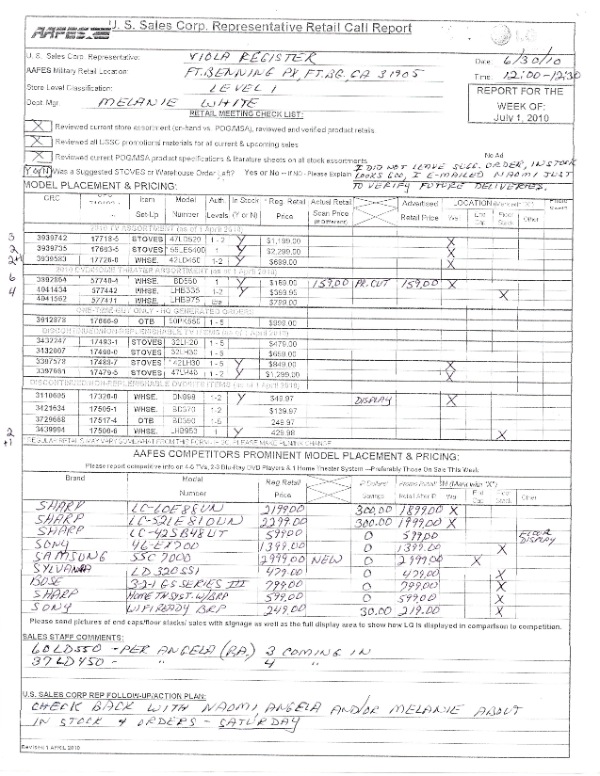 AAFES U. S. Sales Corp. Representative Retail Call Report
U. S. Sales Corp. Representative: VIOLA REGISTER Date 6/30/10
AAFES Military Retail Location: FT. BENNING PX, FT. BG, GA 31905 Time 12:00-12:30
Store Level Classification: LEVEL 1
Dept Mgr. MELANIE WHITE
REPORT FOR THE
WEEK OF:
July 1, 2010
RETAIL MEETING CHECK LIST:
X Reviewed current store assortment (on-hand vs. POG/MSA), reviewed and verified product retails
X Reviewed all USSC promotional materials for all current & upcoming sales
X Reviewed current POG/MSA product specifications & literature sheets on all stock assortments No Ad
Y or N Was a Suggested STOVES or Warehouse Order Left? Yes or No -- If NO - Please Explain I DID NOT LEAVE SUGG. ORDER, IN STOCK
LOOKS GOO, I E-MAILED NAOMI JUST
TO VERIFY FUTURE DELIVERIES.
MODEL PLACEMENT & PRICING:
CRC Item Set-Up Model Number Auth. Levels In Stock (Y or N) Reg. Retail Price Actual Retail Scan Price (If Different) Advertised Retail Price LOCATION Wall End Cap Floor Stack Other
3 3939742 17718-5 STOVES 47LD520 1 - 2 Y $1,199.00 X
2 3939735 17693-5 STOVES 55LE5400 1 - 2 Y $2,299.00 X
3939583 17726-0 WHSE. 42LD450 1 - 2 Y $699.00 X
6 3892854 57740-4 WHSE. BD550 1 Y $189.00 159.00 PR. CUT 159.00 X
4 4041434 577442 WHSE. LHB335 1 - 2 Y $399.95 X
4041562 577411 WHSE. LHB975 $799.00
ONE-TIME BUY ONLY - HQ GENERATED ORDERS
3912878 17688-9 OTB 50PK550 1 - 5 $999.00
3432347 17493-1 STOVES 32LH20 1 - 5 $479.00
3432807 17498-0 STOVES 32LH30 1 - 5 $659.00
3397578 17488-7 STOVES 42LH30 1 - 5 Y $849.00 X
3397661 17479-5 STOVES 47LH40 1 - 5 Y $1,299.00 X
3110695 17320-0 WHSE. DN898 1-2 Y $49.97 DISPLAY X
3421634 17505-1 WHSE. BD370 1-2 $129.97
3729668 17517-4 OTB BD390 1-5 248.00
2 +1 3439994 17500-6 WHSE. LHB953 1 Y 429.98 X
AAFES COMPETITORS PROMINENT MODEL PLACEMENT & PRICING:
Please report competitive info on 4-6 TVs, 2-3 Blu-Ray DVD Players & 1 Home Theater System --Preferably Those On Sale This Week
Brand Model Number Reg Retail Price $ Dollars Savings Wall End Cap Floor Stack Other
SHARP LC-60E88UN 2199.00 300.00 1899.00 X
SHARP LC-52LE810UN 2299.00 300.00 1999.00 X
SHARP LC-42SB48UT 599.00 0 599.00 FLOOR DISPLAY
SONY 46-EX700 1399.00 0 1399.00 X
SAMSUNG 55C7000 2999.00 NEW 0 2999.00 X
SYLVANIA LD320SS1 479.00 0 479.00 X
BOSE 3-2-1 GS SERIES III 799.00 0 799.00 X
SHARP HOME TH SYST. W/BRP 599.00 0 599.00 X
SONY WIFI READY BRP 249.00 30.00 219.00 X
Please send pictures of end caps/floor stacks/ sales with signage as well as the full display area to show how LG is displayed in comparison to competition.
SALES STAFF COMMENTS:
60LD550 - PER ANGELA (RA,) 3 COMING IN
37LD450 - " 4 "
U.S. SALES CORP REP FOLLOW-UP/ACTION PLAN:
CHECK BACK WITH NAOMI, ANGELA AND/OR MELANIE ABOUT
IN STOCK & ORDERS - SATURDAY
Revised 1 APRIL 2010